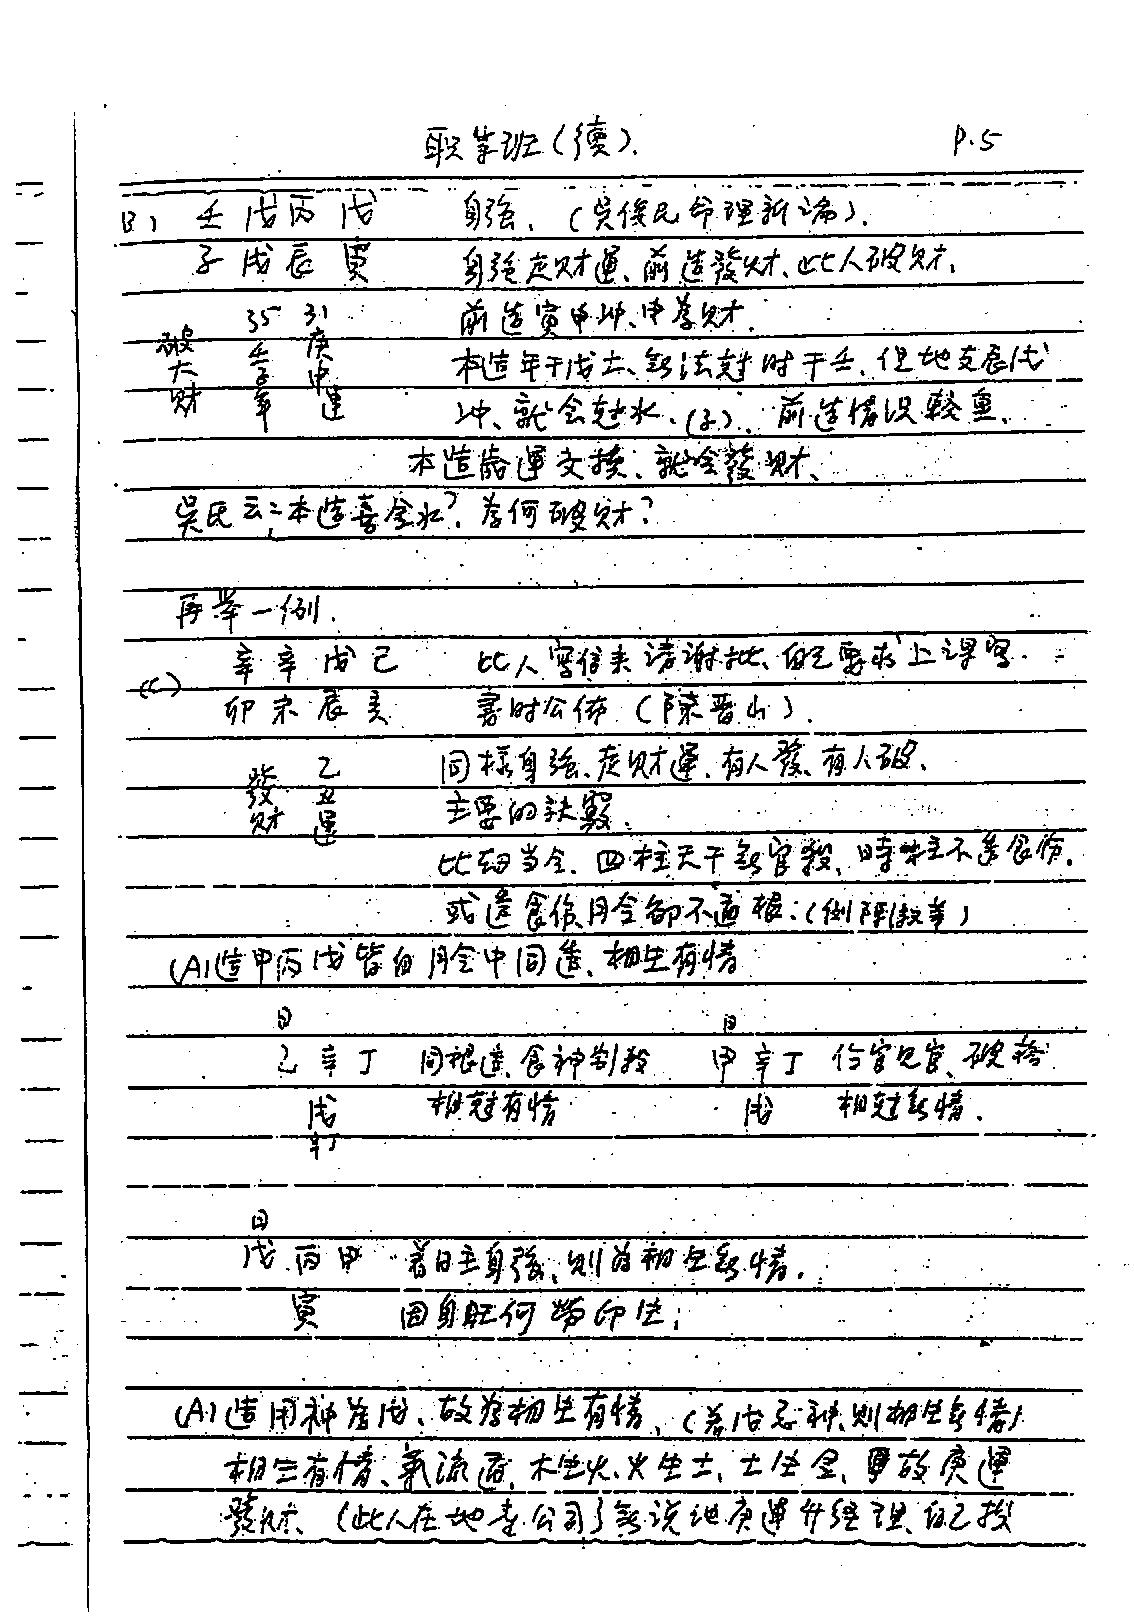 职業班(續). P.5
(B) 壬戊丙戊 身強.(吳俊民命理新論).
子戌辰寅 身強走财運、前造發财、此人破财.
35 31 前造寅申冲、申為财.
破大财 壬子年 庚申運
本造年干戊土、無法尅时干壬、但地支辰戌
冲、就会尅水.(子). 前造情况較重.
本造 運交接、就会發财、
吳氏云:本造喜金水? 為何破财?
再举一例.
(C) 辛辛戊己 此人寫信来請謝批、自己要求上課
卯未辰亥 書时公佈(陳晋山).
發财 乙丑運
同樣身強、走财運、有人發、有人破.
主要的訣竅:
比刼当令、四柱天干無官殺、時柱不透食伤.
或透食伤、月令卻不通根:(
(A)造甲丙戊皆自月令中同透、相生有情
日 日
乙辛丁 同根透、食神制殺 甲辛丁 伤官见官、破格
戌 相尅有情 戌 相尅無情.
辛丁
日
戊丙甲 若日主身強、則為相生無情.
寅 因身旺何勞印生;
(A)造用神為戊、故為相生有情、(若戊忌神、則相生無情)
相生有情、氣流通、木生火、火生土、土生金、 故庚運
發财、(此人在地 公司)無说他庚運升經理、自己投